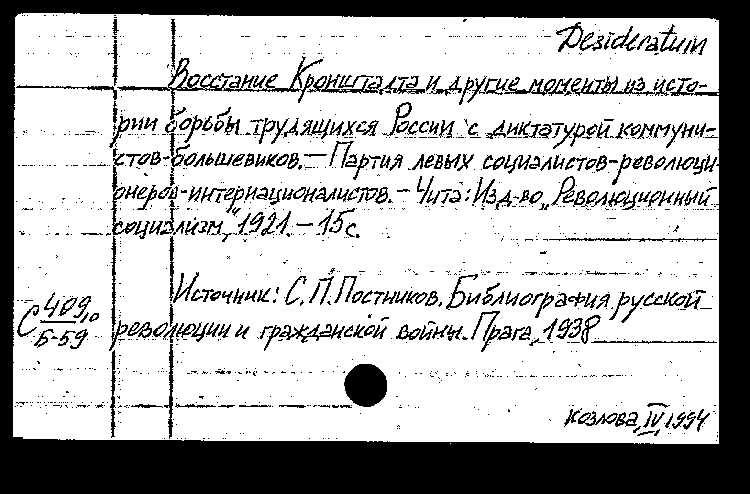 Desideratum
Восстание Кронштадта и другие моменты из исто-
рии борьбы трудящихся России с диктатурой коммуни-
стов-большевиков. — Партия левых социалистов-революци-
онеров-интернационалистов. — Чита: Изд-во „Революционный
социализм", 1921. — 15 с.
Источник: С. П. Постников. Библиография русской
революции и гражданской войны. Прага, 1938
С 409,0
Б-59
Козлова, IV, 1994